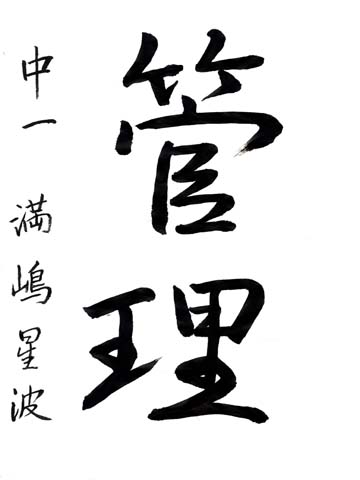 管理
中一 満嶋星波